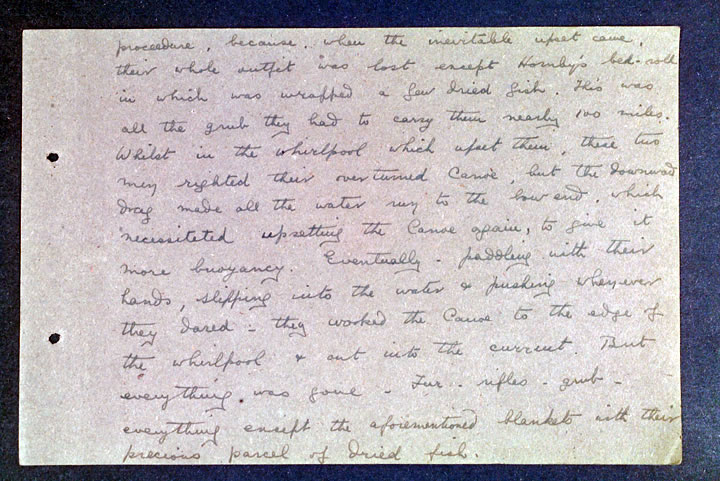 proceedure, because, when the inevitable upset came,
their whole outfit was lost except Hornby's bed-roll
in which was wrapped a few dried fish. This was
all the grub they had to carry them nearly 100 miles.
Whilst in the whirlpool which upset them, these two
men righted their overturned Canoe, but the downward
drag made all the water run to the bow end, which
necessiteted upsetting the Canoe again, to give it
more buoyancy. Eventually - paddling with their
hands, slipping into the water & pushing whenever
they dared - they worked the Canoe to the edge of
the whirlpool & out into the current. But
everything was gone - Fur - rifles - grub -
everything except the aforementioned blankets with their
precious parcel of dried fish.